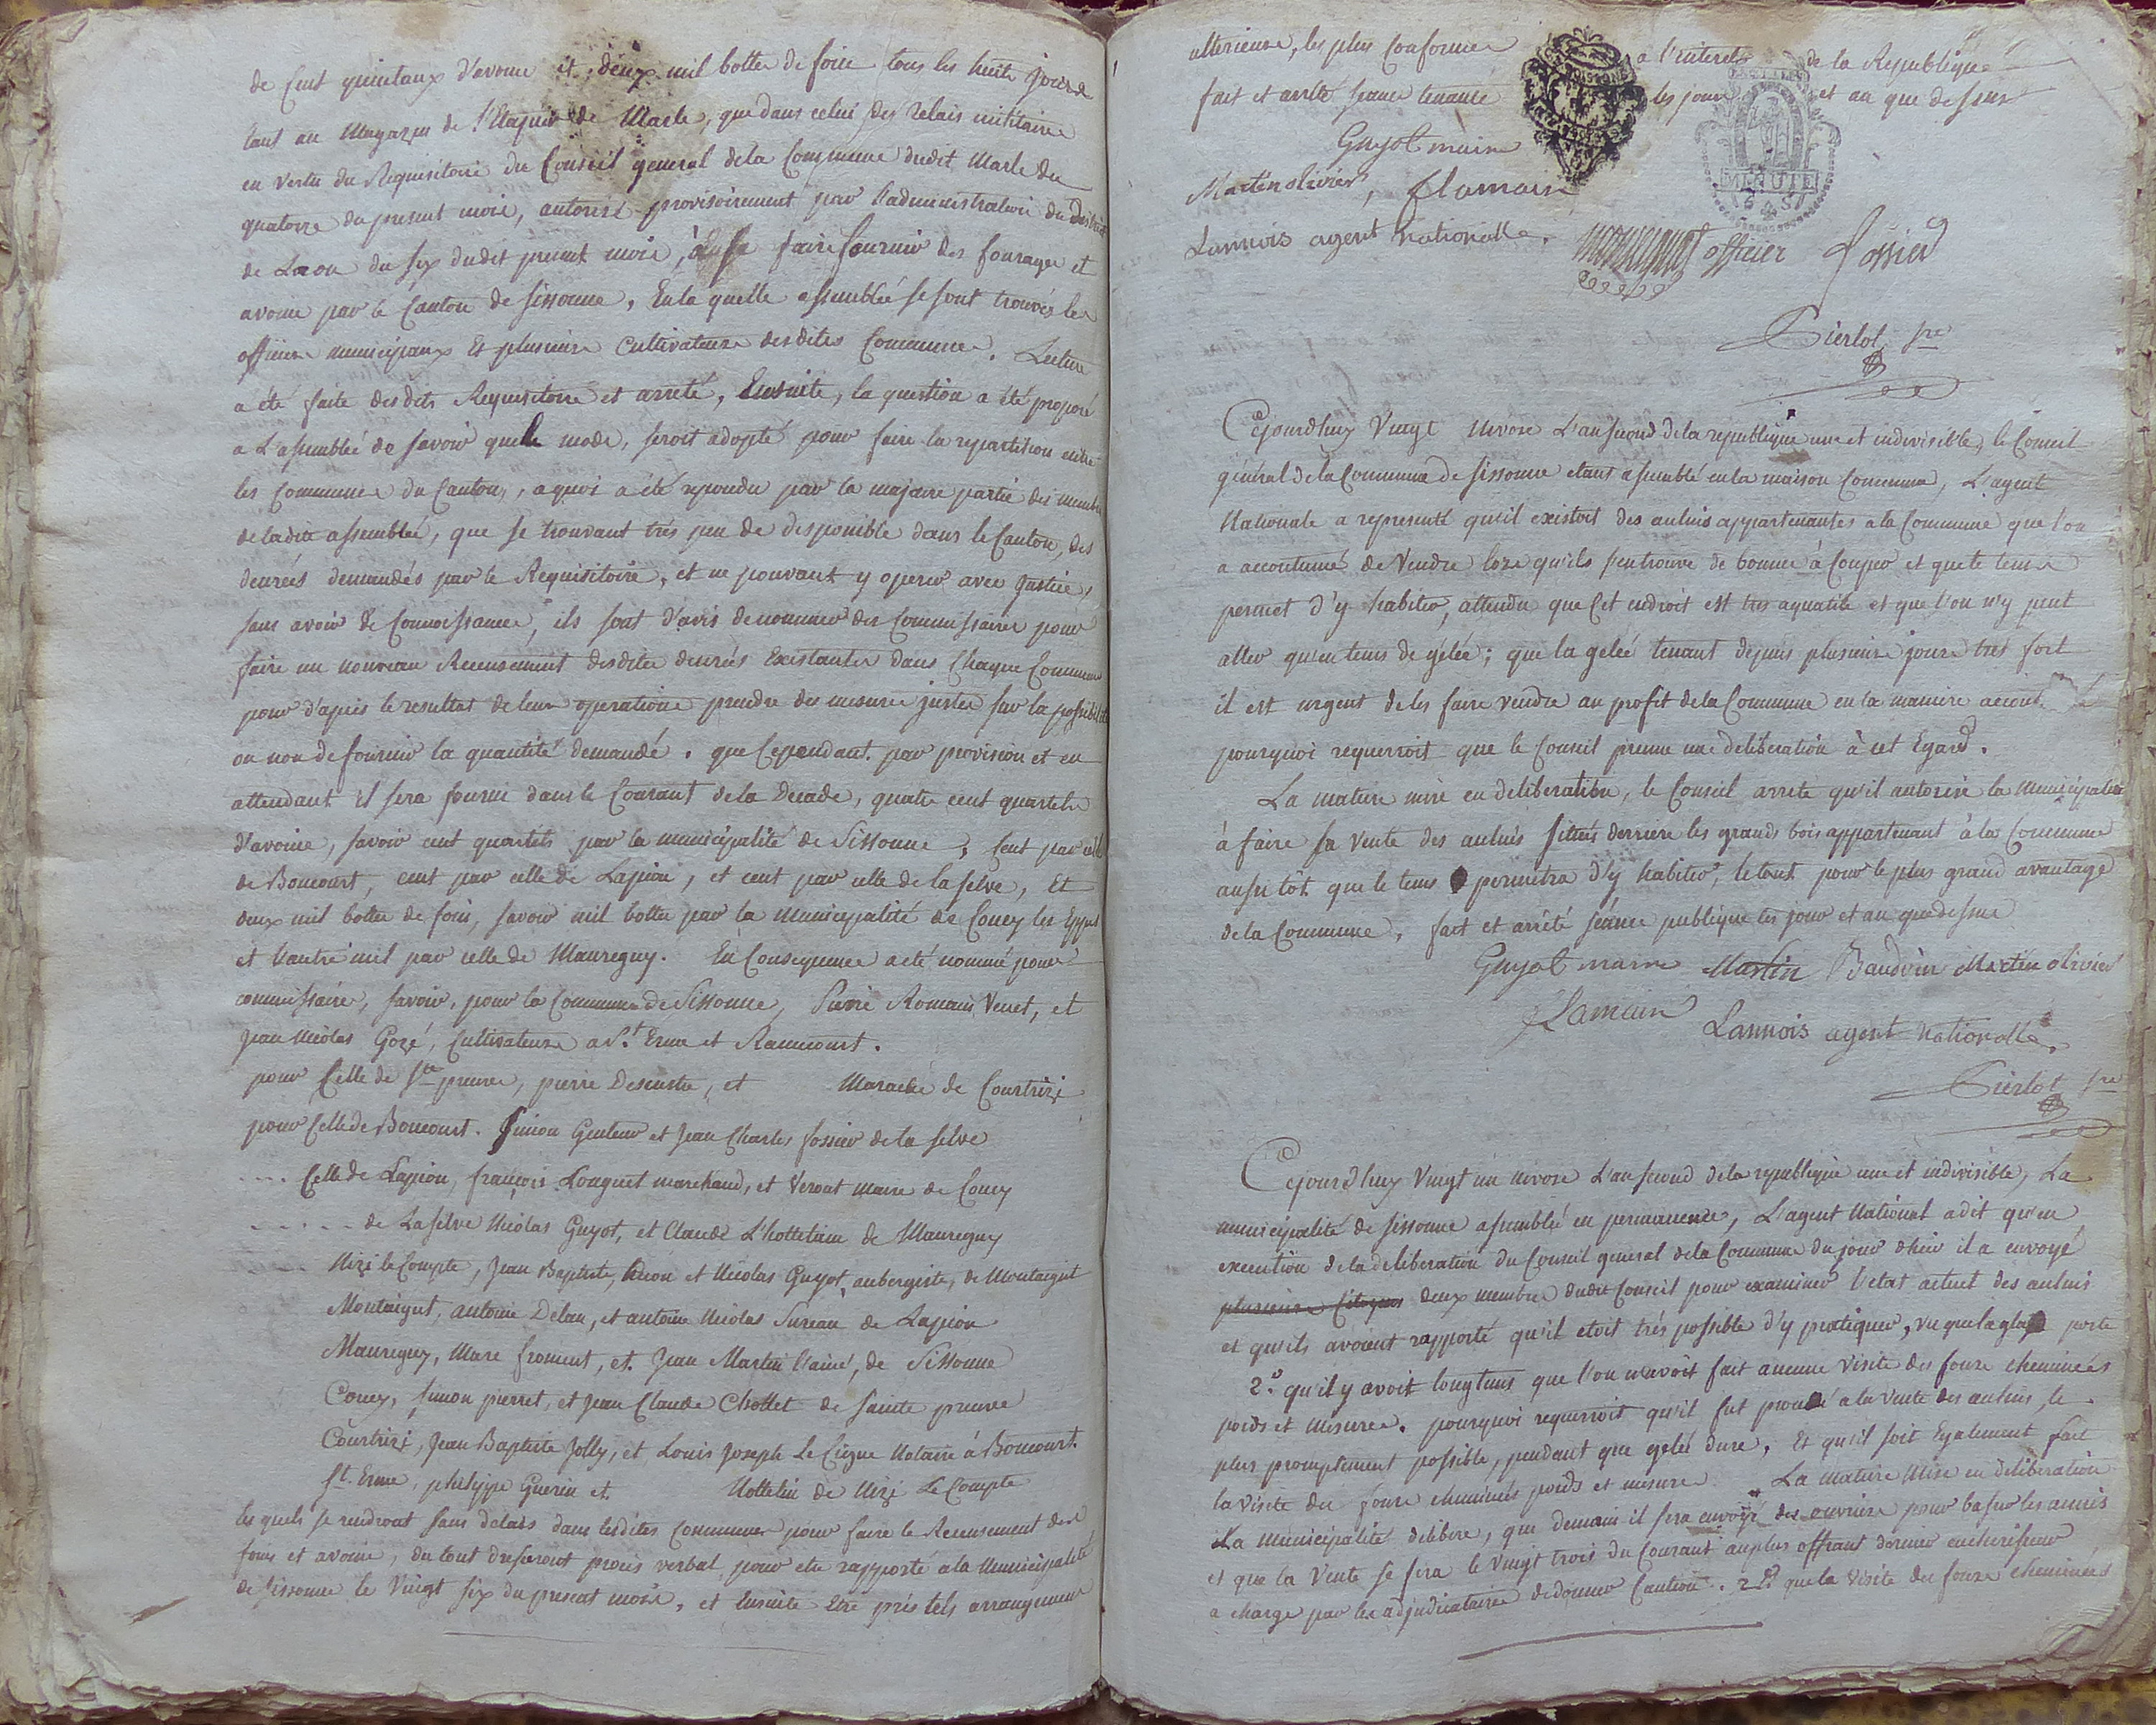 de cent quintaux d'avoine et deux mil bottes de foin tous les huit jours
tant au Magazin de l'Etapier de Marle, que dans celui des relais militaire
en vertu du Requisitoire du Conseil general de la Commune dudit Marle du
quatorze du present mois, autorisé provisoirement par l'administration du district
de Laon du six dudit present mois, à se faire fournir des fourages et
avoine par le Canton de Sissonne, En la quelle assemblée se sont trouvés les
officiers municipaux Et plusieurs Cultivateurs desdites Communes. Lecture
a été faite desdits Requisitoire et arreté, Ensuite, la question a été proposé
a L'assemblée de savoir quelle mode, seroit adopté pour faire la repartition entre
les Communes du Canton, aquoi a été repondu par la majeure partie des membres
de ladite assemblée, que se trouvant trés peu de disponible dans le Canton, des
denrées demandés par le Requisitoire, et ne pouvant y operer avec justice,
sans avoir de Connoissance, ils sont d'avis de nommer des Commissaires pour
faire un nouveau Recensement desdites denrées Existantes dans Chaque Commune
pour d'après le resultat de leurs operations prendre des mesures justes sur la possibilité
ou non de fournir la quantité demandé. que Cependant par provision et en
attendant il sera fourni dans le Courant de la Decade, quatre cent quartels
d'avoine, savoir cent quartels par la municipalité de Sissonne, Cent par celle
de Boncourt, cent par celle de Lapion, et cent par celle de la selve, Et
deux mil bottes de foin, savoir mil bottes par la municipalité de Coucy les Eppes
et l'autre mil par celle de Mauregny. En Consequence a été nommé pour
commissaire, savoir, pour la Commune de Sissonne, Pierre Romain Venet, et
Jean Nicolas Gozé, Cultivateurs a St. Erme et Ramecourt.
pour Celle de Ste preuve, pierre Descustre, et Maraché de Courtrizi
pour Celle de Boncourt. Simon Genteur et Jean Charles fossier de la selve
.... Celle de Lapion, françois Longuet marchand, et Veront maire de Coucy
- - - - - de La selve Nicolas Guyot, et Claude L'hottelain de Mauregny
Nizi le Compte, Jean Baptiste, huon et Nicolas Guyot, aubergiste, de Montaigut
Montaigut, antoine Delan, et antoine Nicolas Sureau de Lapion
Mauregny, Marc froment, et Jean Martin l'ainé, de Sissonne
Coucy, simon pierret, et Jean Claude Chollet de Sainte preuve
Courtrizi, Jean Baptiste Jolly, et Louis Joseph Le Cigne Notaire à Boncourt.
St. Erme, philippe Guerin et Hottelin de Nizi Le Compte
les quels se rendront sans delais dans lesdites Communes pour faire le Recensement des
foins et avoine, du tout dresseront procès verbal pour etre rapporté a la municipalité
de sissonne le Vingt six du present mois, et Ensuite Etre pris tels arrangemens
ulterieure, les plus Conformes a l'interets de la Republique
fait et arrêté seance tenante les jour et an que dessus
MINUTE
Guyot maire
Martin olivier, flamain
Lannois agent nationalle. officier fossier
Pierlot, sre
Cejourd'huy Vingt Nivose L'an second de la republique une et indivisible, le Conseil
général de la Commune de Sissonne etant assemblé en la maison Commune, L'agent
Nationale a representé qu'il existoit des aulnis appartenantes a la Commune que l'on
a accoutumé de Vendre lorsqu'ils s'en trouve de bonnes à Couper et que le tems
permet d'y habiter, attendu que Cet endroit est tres aquatile et que l'on n'y peut
aller qu'en tems de gélée; que la gelée tenant depuis plusieurs jours trés fort
il est urgent de les faire vendre au profit de la Commune en la maniere accout
pourquoi requerroit que le Conseil prenne une deliberation à cet Egard.
La matiere mise en deliberation, le Conseil arrete qu'il autorise la municipalité
à faire la vente des aulnis sitües derriere les grands bois appartenant à la Commune
aussitôt que le tems permettra d'y habiter, le tout pour le plus grand avantage
de la Commune, fait et arrêté séance publique les jour et an que dessus
Guyot maire Martin Baudoin Martin olivier
flamain Lannois agent nationalle.
Pierlot sre
Cejourd'huy Vingt un nivose L'an second de la republique une et indivisible, La
municipalité de sissonne assemblée en permanence, L'agent National a dit qu'en
execution de la deliberation du Conseil general de la Commune du jour d'hier il a envoyé
plusieurs Citoyens deux membres dudit Conseil pour examiner l'etat actuel des aulnis
et qu'ils avoient rapporté qu'il etoit trés possible d'y pratiquer, vu que la glace porte
2.° qu'il y avoit longtems que l'on n'avoit fait aucune visite des fours cheminées
poids et mesures. pourquoi requerroit qu'il fut procédé a la vente des aulnis, le
plus promptement possible, pendant que gelée dure, Et qu'il soit Egalement fait
la visite des fours cheminés poids et mesure. La matiere Mise en deliberation
La municipalité delibere, que demain il sera envoyé des ouvriers pour basser les aunis
et que la Vente se fera le vingt trois du Courant au plus offrant dernier encherisseur
a charge par les adjudicataires de donner Caution. 2.° que la visite des fours cheminées